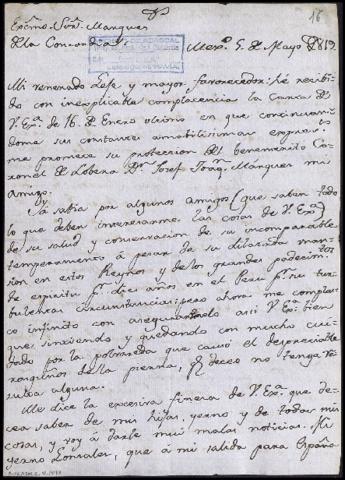 Excmo. Sor. Marques
de la Concordia
16
Mexo. 5 de Mayo de 1819.
Mi venerado Jefe y mayor favorecedor: hé recibi-
do con inexplicable complacencia la Carta de
V. Exa. de 16. de Enero ultimo en que continuan-
dome sus constantes amabilisimas expres.s
me promete su proteccion del benemerito Co-
ronel de Lobera Dn. Josef Joaqn. Márquez mi
Amigo.
Ya sabia por algunos amigos (que saben todo
lo que deben interesarme las cosas de V. Exa.)
de su salud y conservacion de su incomparable
temperamento á pesar de su dilatada man-
sion en estos Reynos y de los grandes padecimtos.
de espiritu pr. diez años en el Peru pr. su tur-
bulentas circunstancias: pero ahora me compla-
co infinito con asegurarmelo asi V. Exa. tien
que, sintiendo y quedando con mucho cui-
dado por la postemada que causó el despreciable
rasguños de la pierna, qe. deceo no tenga re-
sulta alguna.
Me dice la excesiva fineza de V. Exa. que de-
cea saber de mis hijas, yerno y de todas mis
cosas, y voy á darle mui malas noticias. Mi
yerno Gonzalez, que á mi salida para España